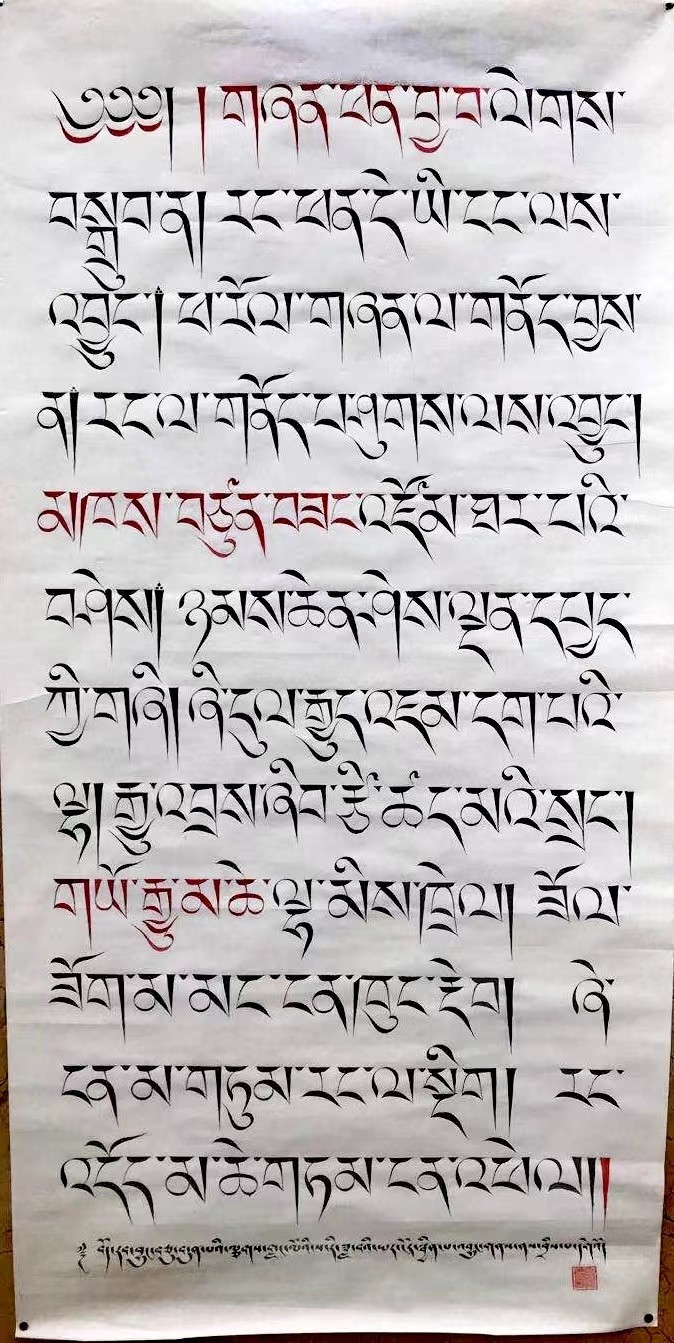 ༄༅༅། །གཞན་ཕན་བྱ་བ་ལེགས་
བསྒྲུབ་ན། རང་ཕན་དེ་ཡི་ངང་ལས་
འབྱུང༌། ཕ་རོལ་གཞན་ལ་གནོད་བྱས་
ན། རང་ལ་གནོད་པ་ཤུགས་ལས་འབྱུང།
མཁས་བཙུན་བཟང་འཛོམ་ཐར་པའི་
བཤེས། ཉམས་ཆེན་ཤེས་ལྡན་དཔྱད་
ཀྱི་གཞི། ཞི་དུལ་རྒྱུད་འཇམ་དག་པའི་
ལྷ། རྒྱུ་འབྲས་ཞིབ་རྩི་ཚད་མའི་སྲང།
གཡོ་རྒྱུ་མ་ཆེ་ལྷ་མིས་ཁྲེལ། ཟོལ་
ཟོག་མ་མང་ངན་ཁུང་རེག ཞེ་
ངན་མ་གཏུམ་རང་ལ་སྡིག རང་
འདོད་མ་ཆེ་གཏམ་ངན་འཕེལ།།